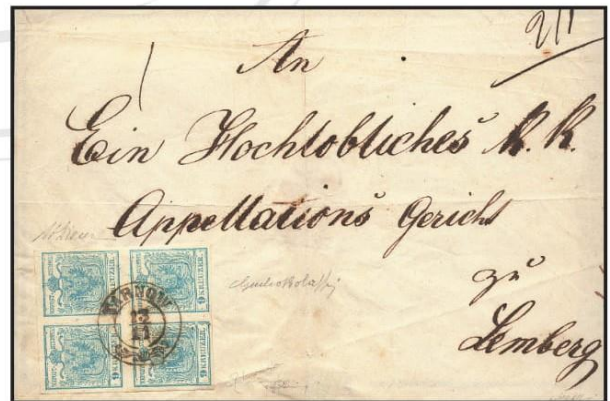 2/1
An
Ein Hochlobliches K. K.
Appellations Gericht
zu
Lemberg
TARNOW
13
9 KREUZER
9 KREUZER
9 KREUZER
9 KREUZER